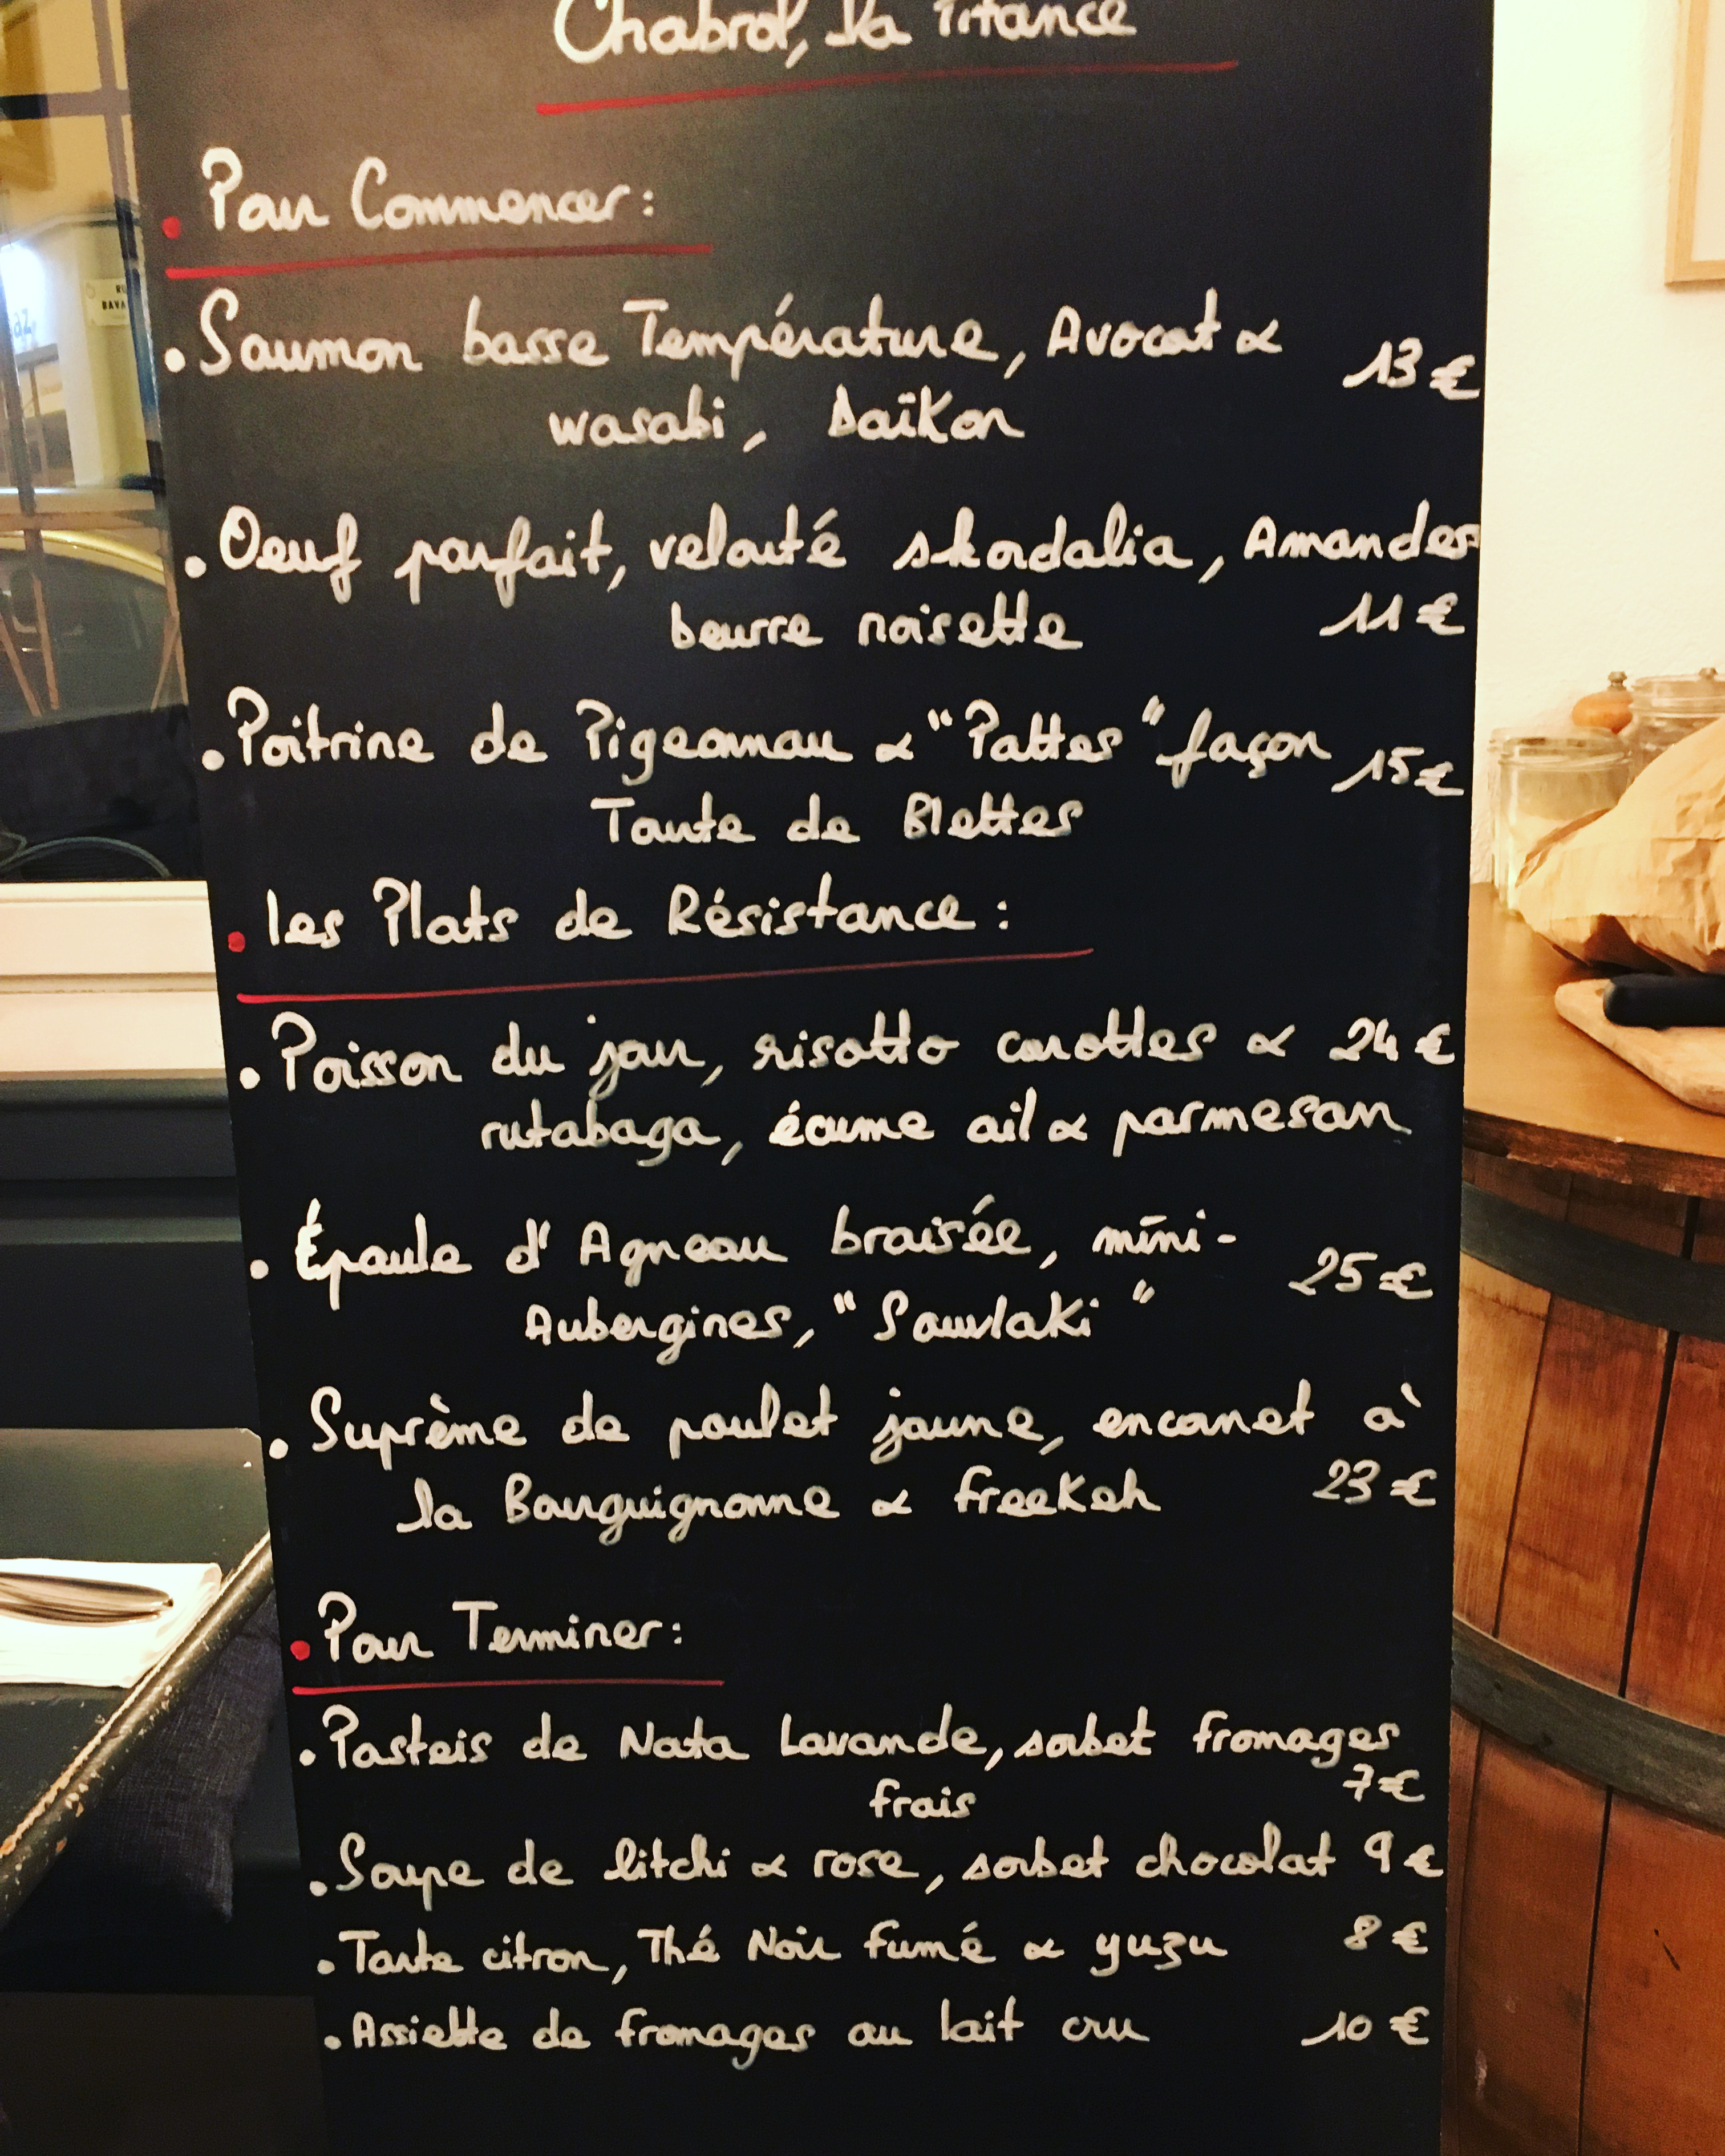 Chabrol, la Pitance
Pour Commencer:
Saumon basse Température, Avocat &
13€
wasabi, Daïkon
Oeuf parfait, velouté skordalia, Amandes
beurre noisette 11€
Poitrine de Pigeonnau & "Pattes" façon 15€
Tourte de Blettes
les Plats de Résistance:
Poisson du jour, risotto carottes & 24€
rutabaga, écume ail & parmesan
Épaule d'Agneau braisée, mini-
25€
Aubergines, "Souvlaki"
Suprème de poulet jaune, encornet à
la Bourguignonne & freekeh 23€
Pour Terminer:
Pasteis de Nata Lavande, sorbet fromages
frais 7€
Soupe de litchi & rose, sorbet chocolat 9€
Tarte citron, Thé Noir fumé & yuzu 8€
Assiette de fromages au lait cru 10€